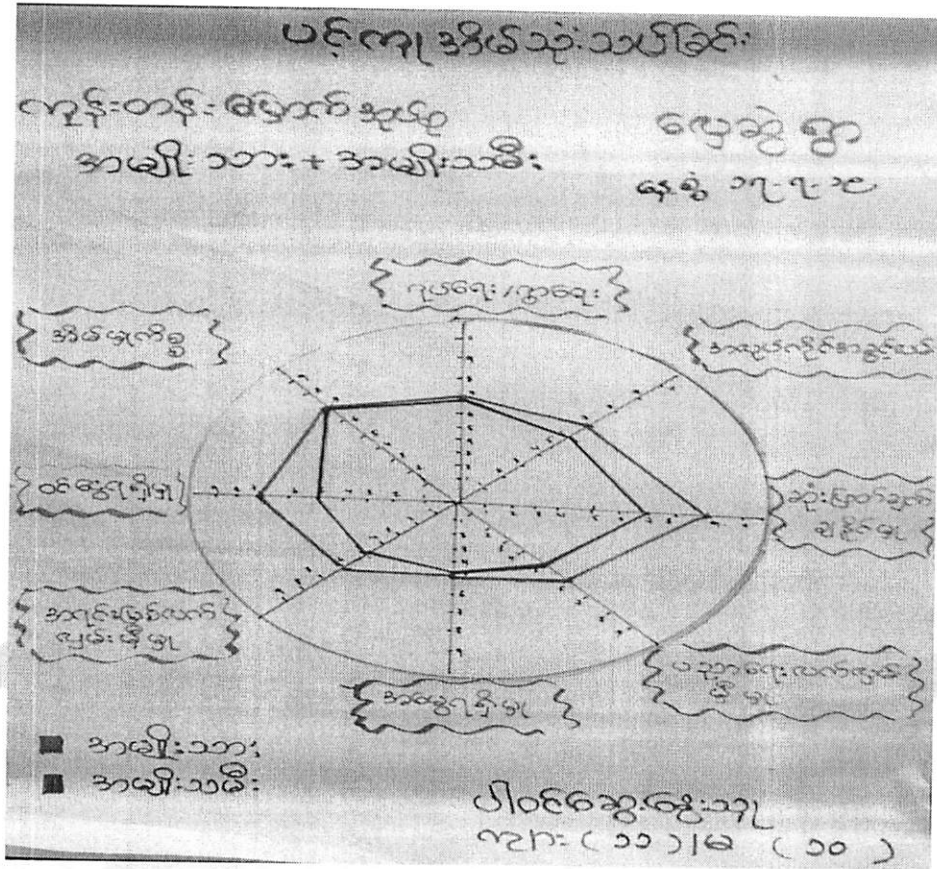 ပင့်ကူအိမ်သုံးသပ်ခြင်း
ကွန်းတန်းမြောက်အုပ်စု
အမျိုးသား + အမျိုးသမီး
လှေဆွဲရွာ
နေ့စွဲ ၁၇-၇-၁၉
ရပ်ရေး/ရွာရေး
အိမ်မှုကိစ္စ
အလုပ်လုပ်ကိုင်စားခွင့်
ဝင်ငွေရရှိမှု
ဆုံးဖြတ်ချက်
ချနိုင်မှု
အရင်းအမြစ်လက်
လှမ်းမီမှု
ပညာရေးလက်လှမ်း
မီမှု
အမွေရရှိမှု
အမျိုးသား
အမျိုးသမီး
ပါဝင်ဆွေးနွေးသူ
ကျား (၁၁)/မ (၁၀)